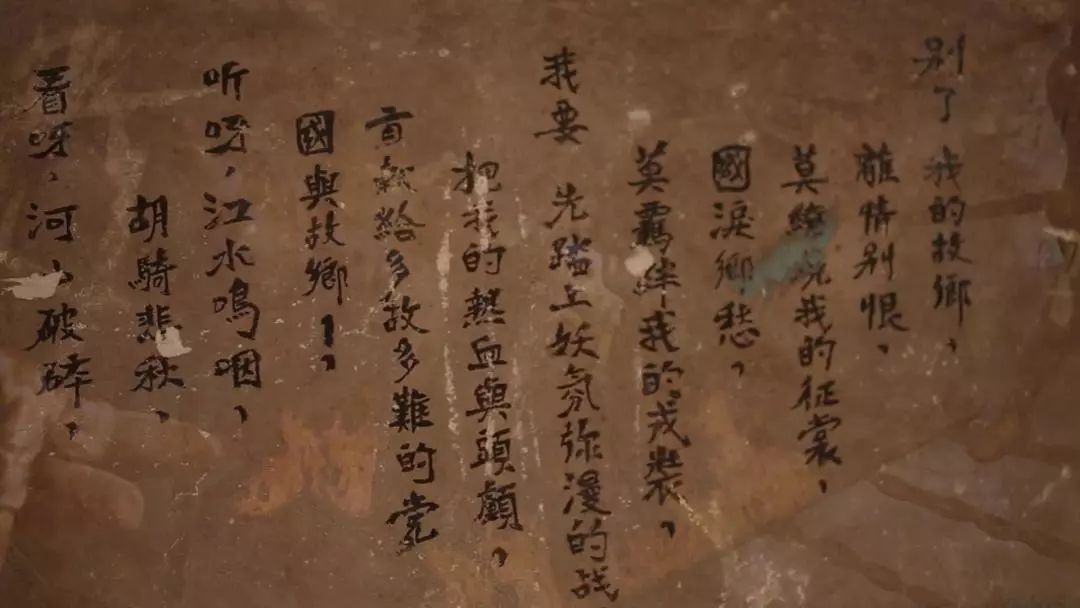 别了我的故鄉、
離情别恨、
莫繞我的征裳，
國淚鄉愁，
莫羈絆我的戎裝，
我要 先踏上妖氛弥漫的战
把我的熱血與頭顱，
貢献給多故多難的党
國與故鄉！，
听呀，江水鳴咽、
胡騎悲秋、
看呀，河山破碎，